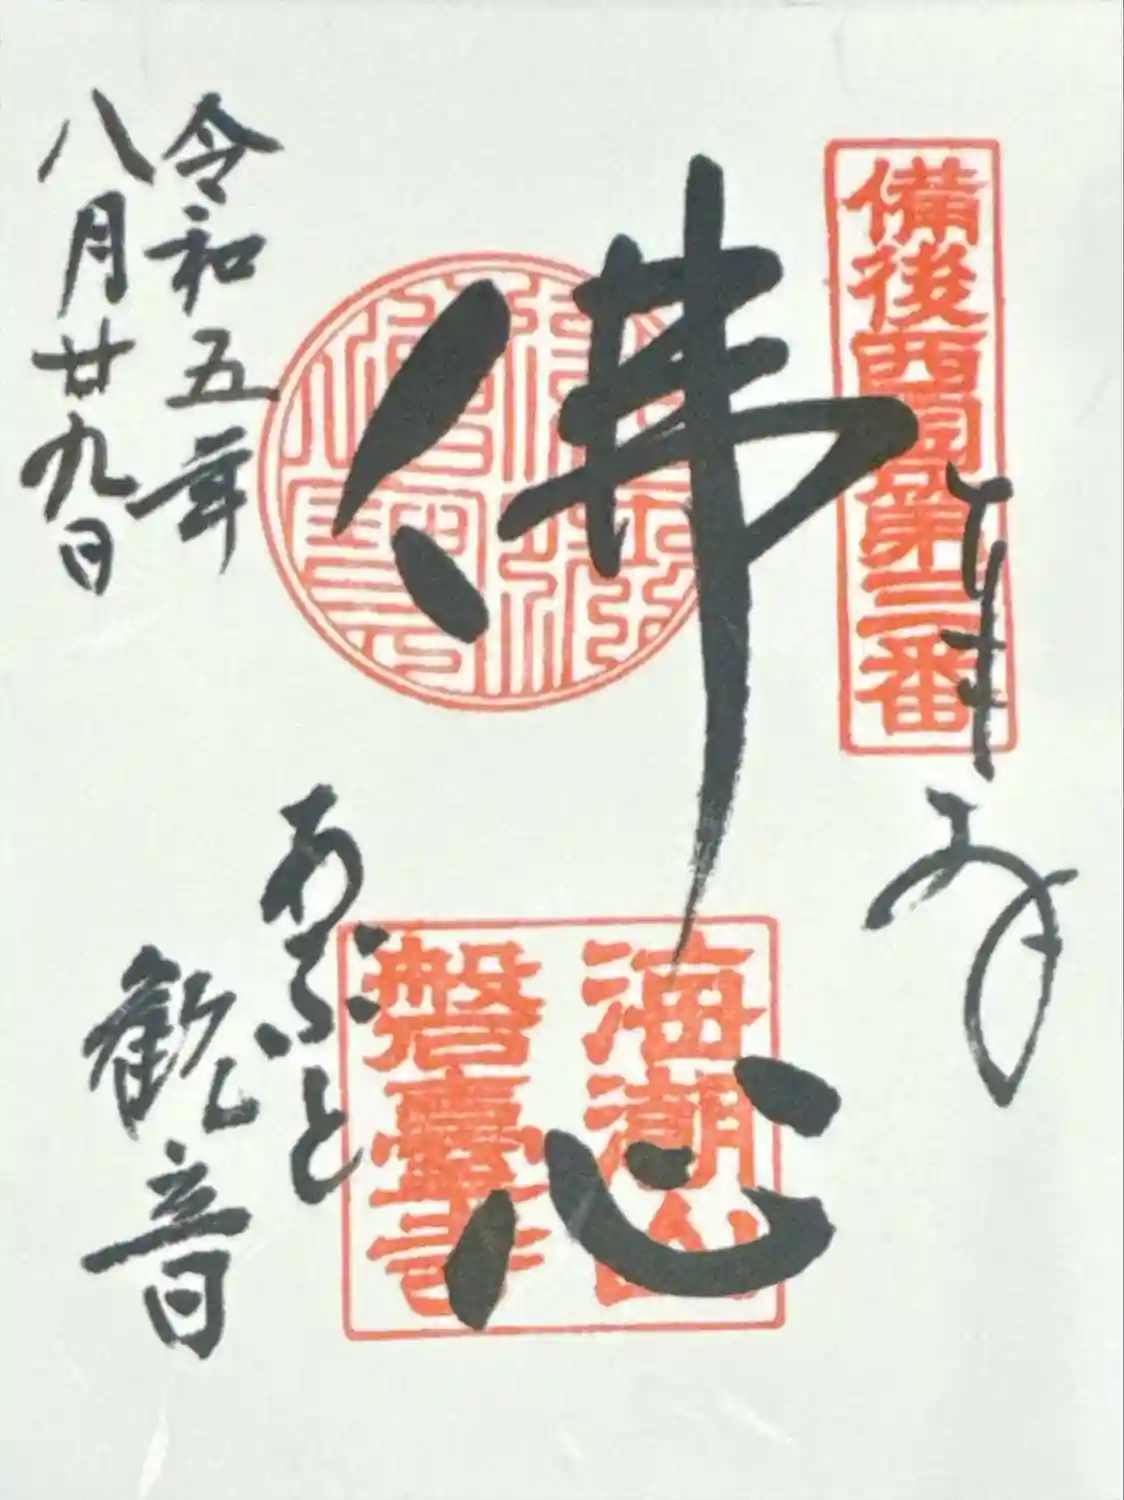 備後西国第三番
奉拝
佛心
海潮山
磐臺寺
あぶと
観音
令和五年
八月廿九日